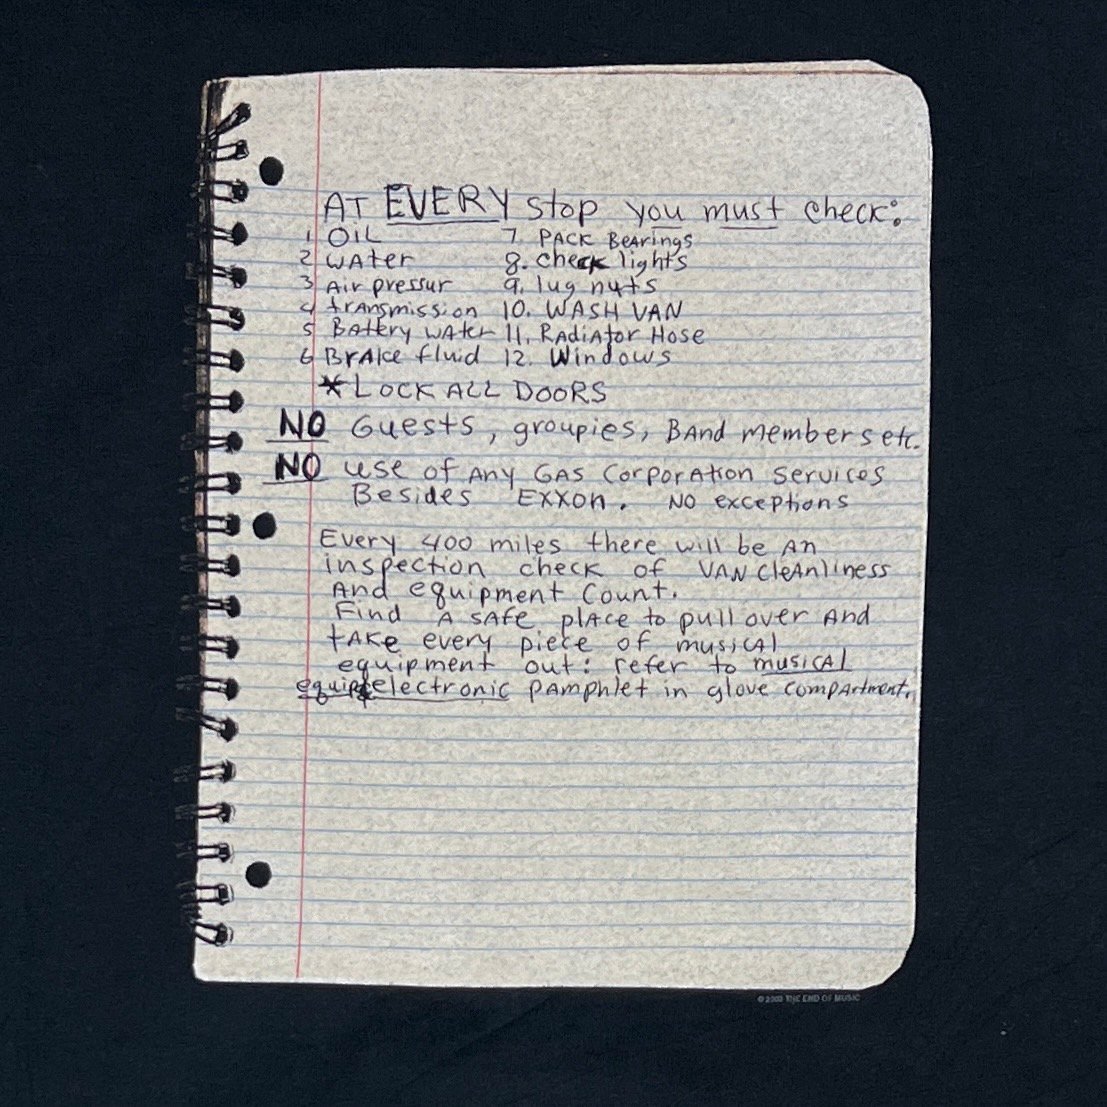 AT EVERY stop you must check:
1 OIL 7. PACK BeArings
2 WAter 8. check lights
3 Air pressur 9. lug nuts
4 trAnsmission 10. WASH VAN
5 BAttery WAter 11. RAdiAtor Hose
6 BrAke fluid 12. Windows
* LOCK ALL DOORS
NO Guests, groupies, BAnd members etc.
NO use of Any GAS CorporAtion Services
Besides EXXon. NO exceptions
Every 400 miles there will be An
inspection check of VAN cleAnliness
And equipment Count.
Find A sAfe plAce to pull over And
tAKe every piece of musicAl
equipment out: refer to musicAl
equip & electronic pAmphlet in glove compArtment.
© 2003 THE END OF MUSIC